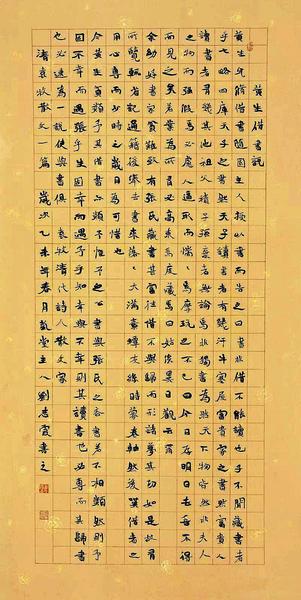 黃生借書說
黃生允脩借書隨園主人授以書而告之曰書非借不能讀也子不聞藏書者
乎七略四庫天子之書然天子讀書者有幾汗牛塞屋富貴家之書然富貴人
讀書者有幾其他祖父積子孫棄者無論焉非獨書為然天下物皆然非夫人
之物而強假焉必慮人逼取而惴惴焉摩玩之不已曰今日存明日去吾不得
而見之矣若業為吾所有必高束焉庋藏焉曰姑俟異日觀云爾
余幼好書家貧難致有張氏藏書甚富往借不與歸而形諸夢其切如是故有
所覽輒省記通籍後俸去書來落落大滿素蟫灰絲時蒙卷軸然後嘆借者之
用心專而少時之歲月為可惜也
今黃生貧類予其借書亦類予惟予之公書與張氏之吝書若不相類然則予
固不幸而遇張乎生固幸而遇予乎知幸與不幸則其讀書也必專而其歸書
也必速為一說使與書俱 袁枚清代詩人散文家
清袁枚散文一篇 歲次乙未年春月 堂主人劉志霞書之